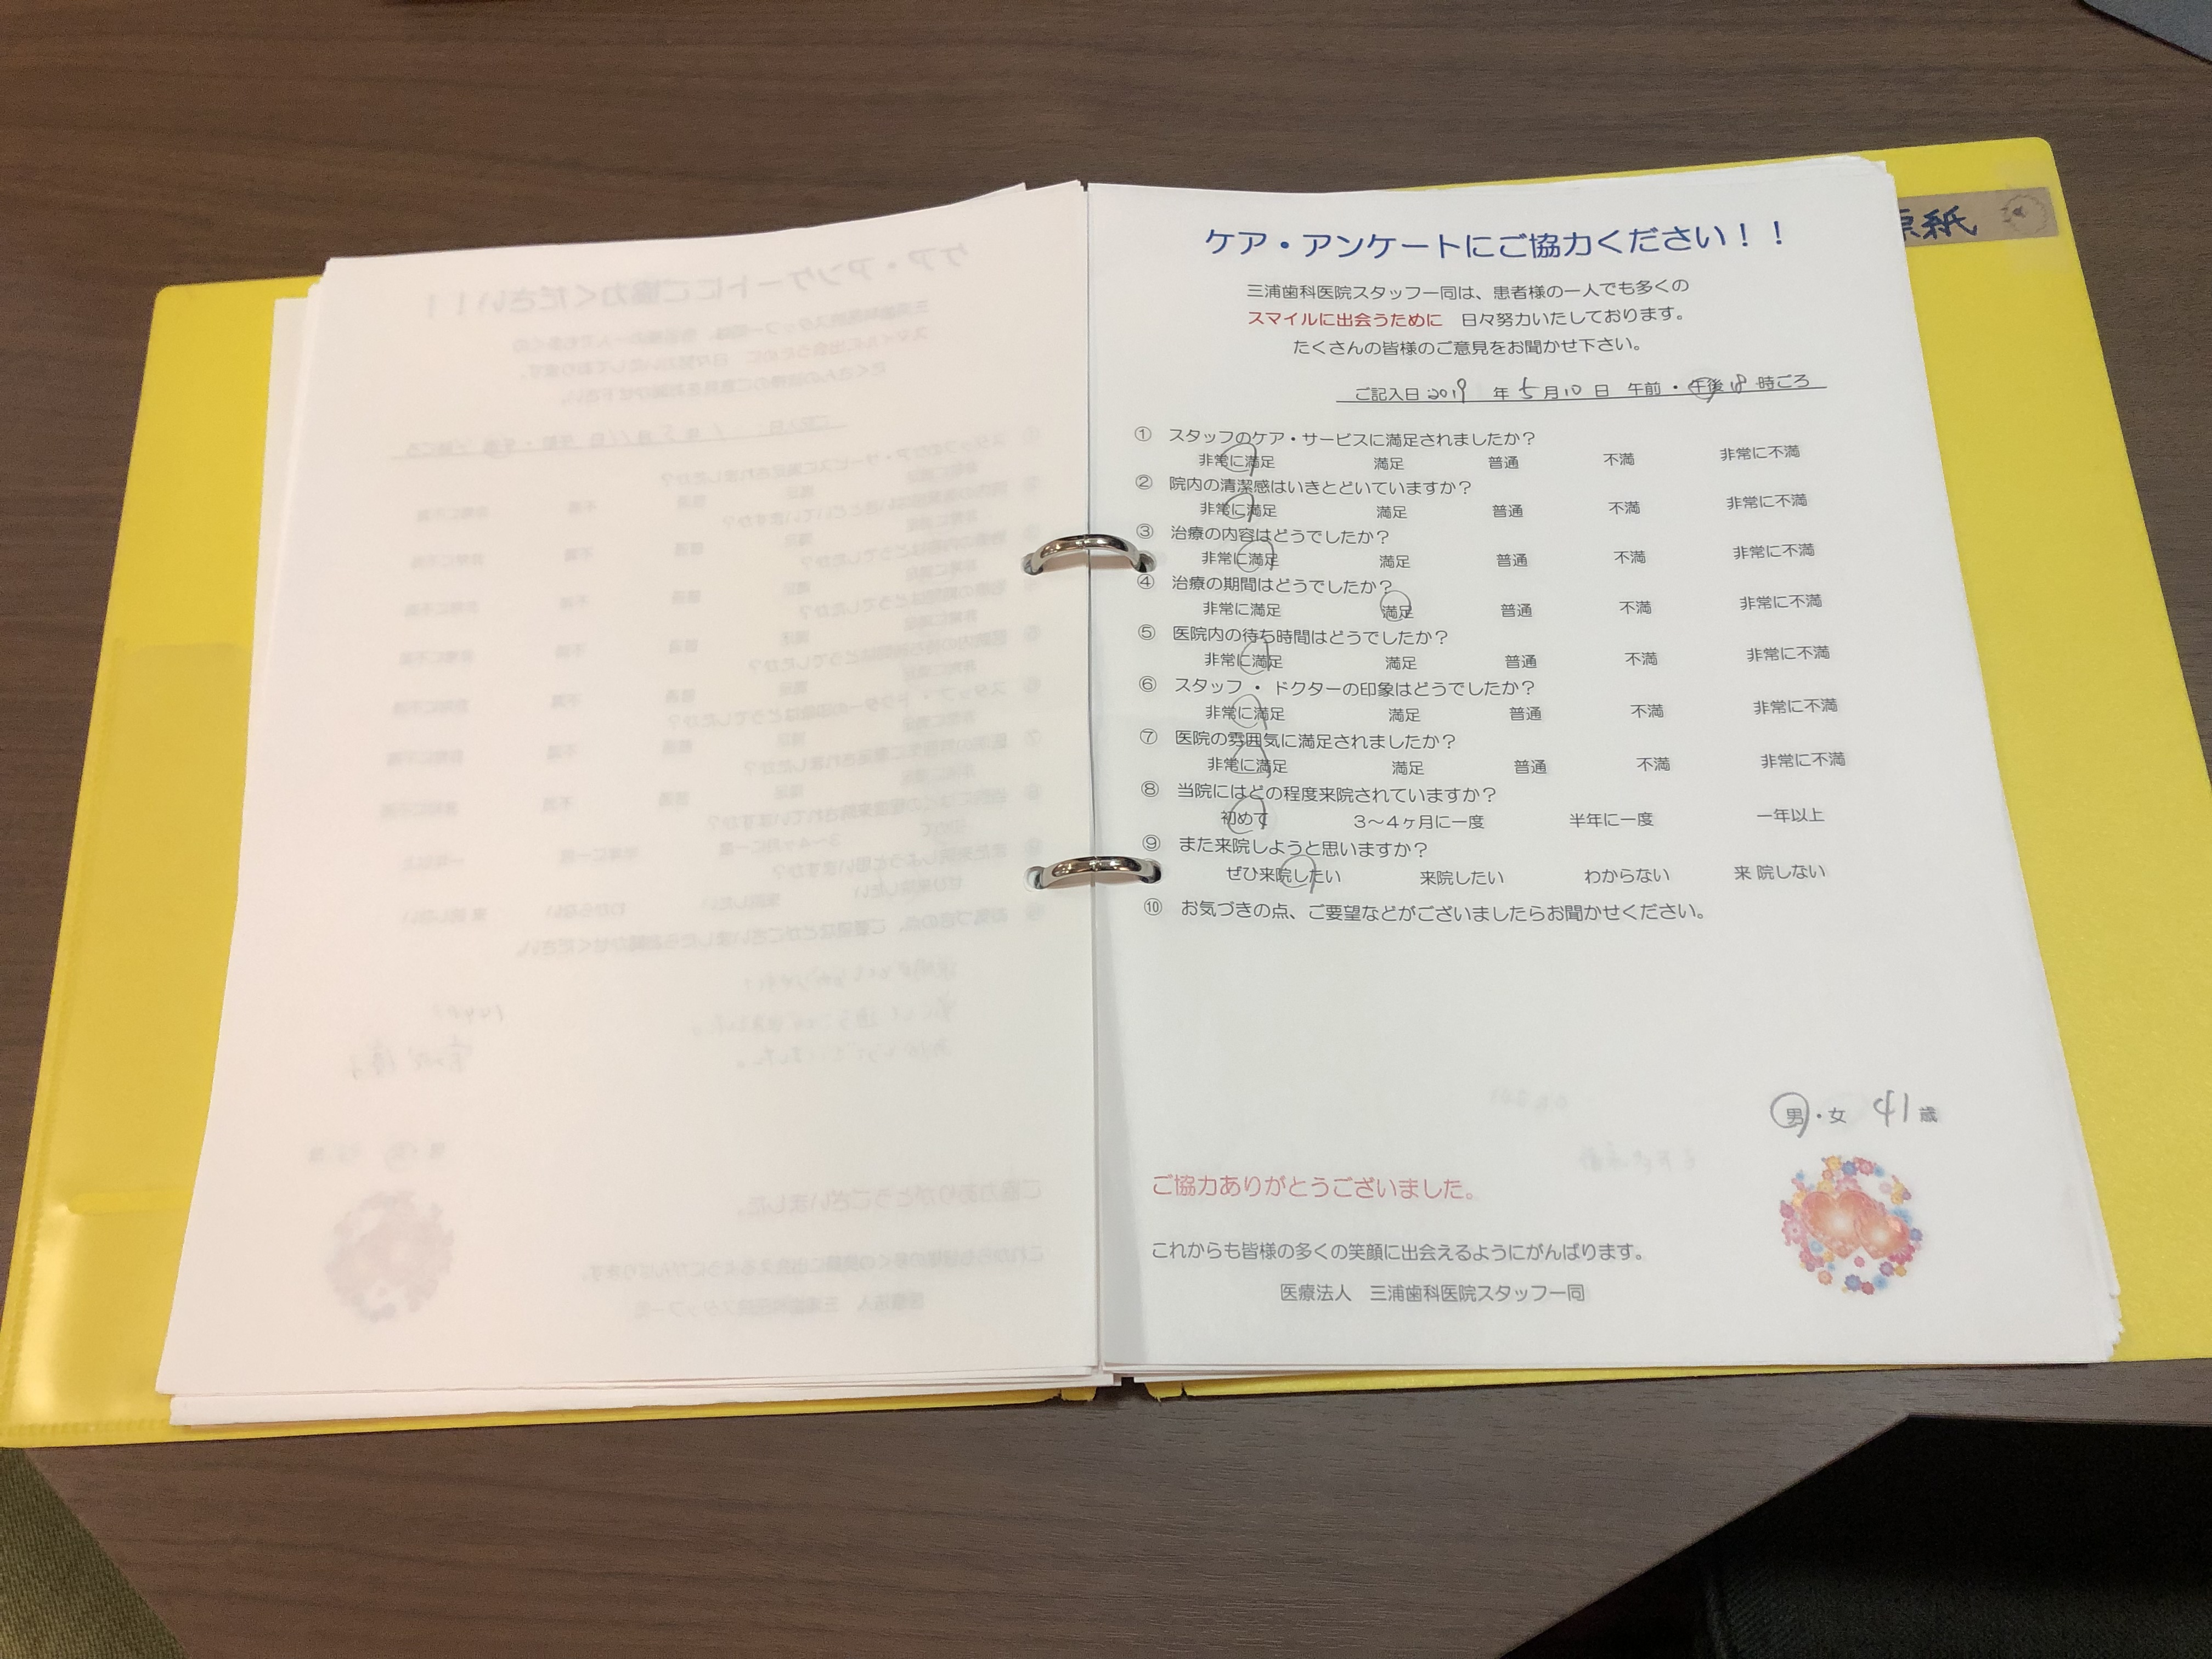 原紙
ケア・アンケートにご協力ください！！
三浦歯科医院スタッフ一同は、患者様の一人でも多くの
スマイルに出会うために　日々努力いたしております。
たくさんの皆様のご意見をお聞かせ下さい。
ご記入日 2019 年 5 月 10 日 午前・午後 18 時ごろ
① スタッフのケア・サービスに満足されましたか？
非常に満足 満足 普通 不満 非常に不満
② 院内の清潔感はいきとどいていますか？
非常に満足 満足 普通 不満 非常に不満
③ 治療の内容はどうでしたか？
非常に満足 満足 普通 不満 非常に不満
④ 治療の期間はどうでしたか？
非常に満足 満足 普通 不満 非常に不満
⑤ 医院内の待ち時間はどうでしたか？
非常に満足 満足 普通 不満 非常に不満
⑥ スタッフ・ドクターの印象はどうでしたか？
非常に満足 満足 普通 不満 非常に不満
⑦ 医院の雰囲気に満足されましたか？
非常に満足 満足 普通 不満 非常に不満
⑧ 当院にはどの程度来院されていますか？
初めて 3～4ヶ月に一度 半年に一度 一年以上
⑨ また来院しようと思いますか？
ぜひ来院したい 来院したい わからない 来院しない
⑩ お気づきの点、ご要望などがございましたらお聞かせください。
男・女 41 歳
ご協力ありがとうございました。
これからも皆様の多くの笑顔に出会えるようにがんばります。
医療法人　三浦歯科医院スタッフ一同